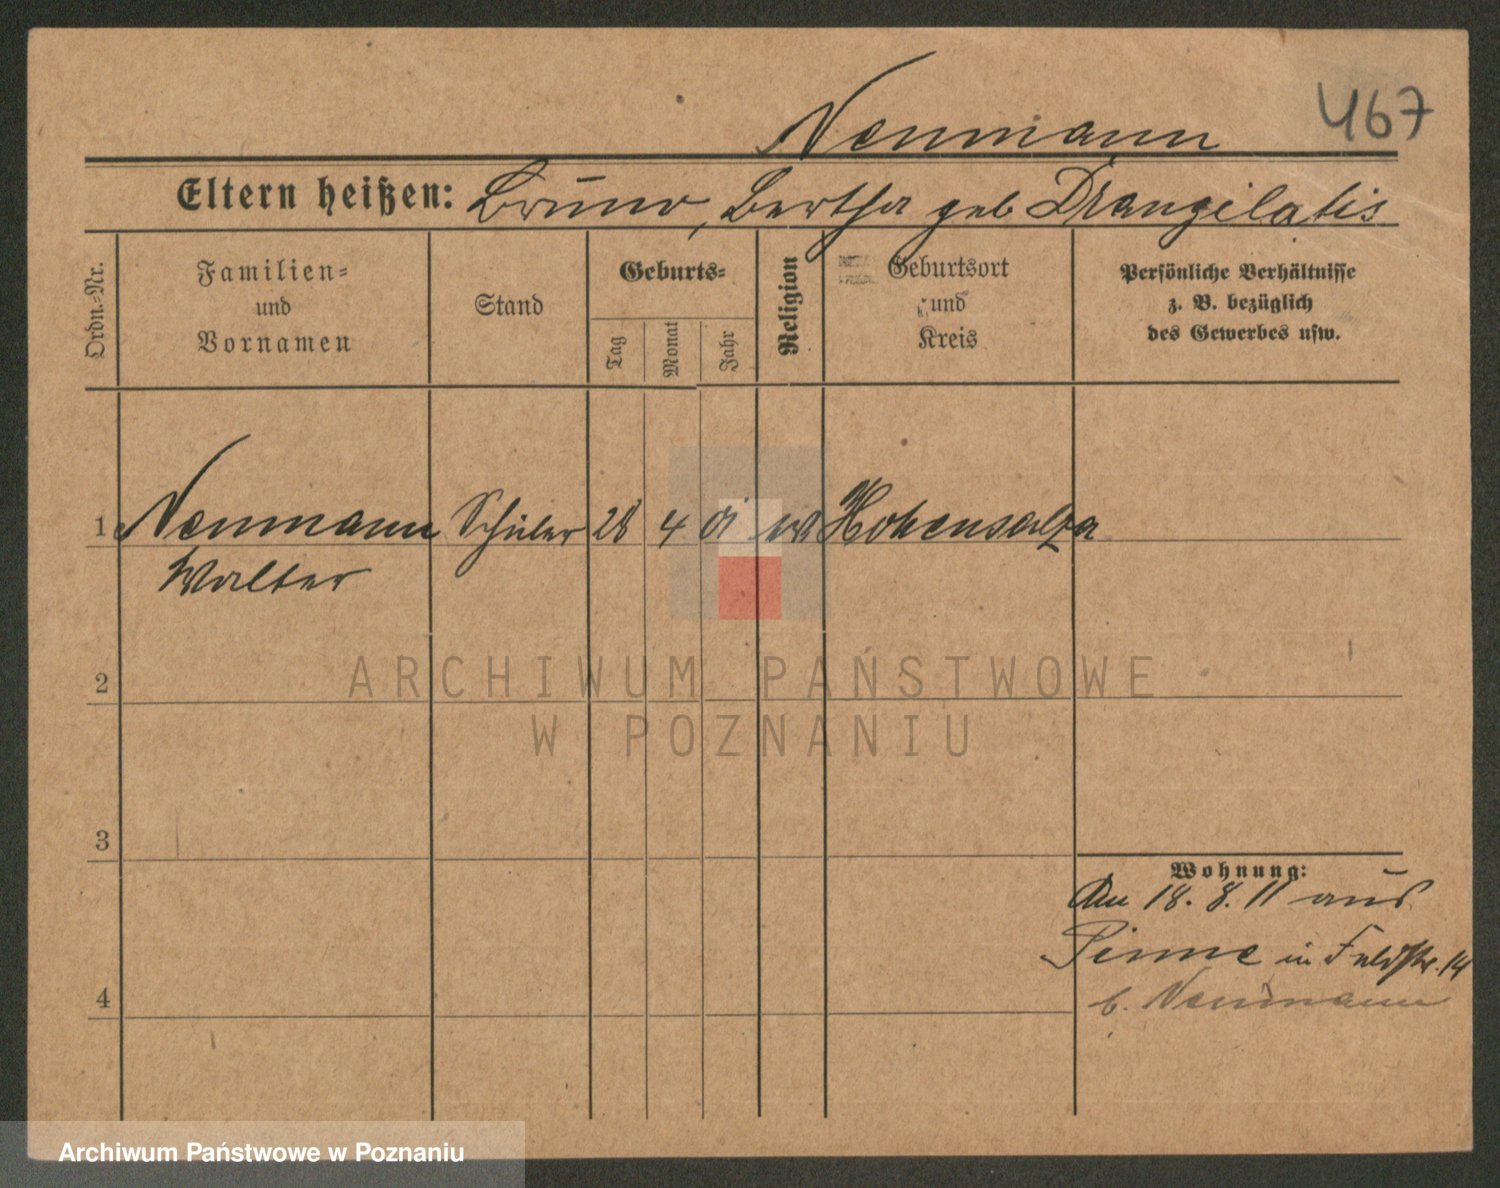 467
Neumann
Eltern heißen: Bruno, Bertha geb
Ordn.-Nr.
Familien-
und
Vornamen
Stand
Geburts-
Tag
Monat
Jahr
Religion
Geburtsort
und
Kreis
Persönliche Verhältnisse
z. B. bezüglich
des Gewerbes usw.
1 Neumann Schüler 28 4 01 Hohensalza
Walter
2
3
4
Wohnung:
Am 18. 8. 11 aus
Pinne in Feldstr. 14
b. Neumann
ARCHIWUM PAŃSTWOWE
W POZNANIU
Archiwum Państwowe w Poznaniu